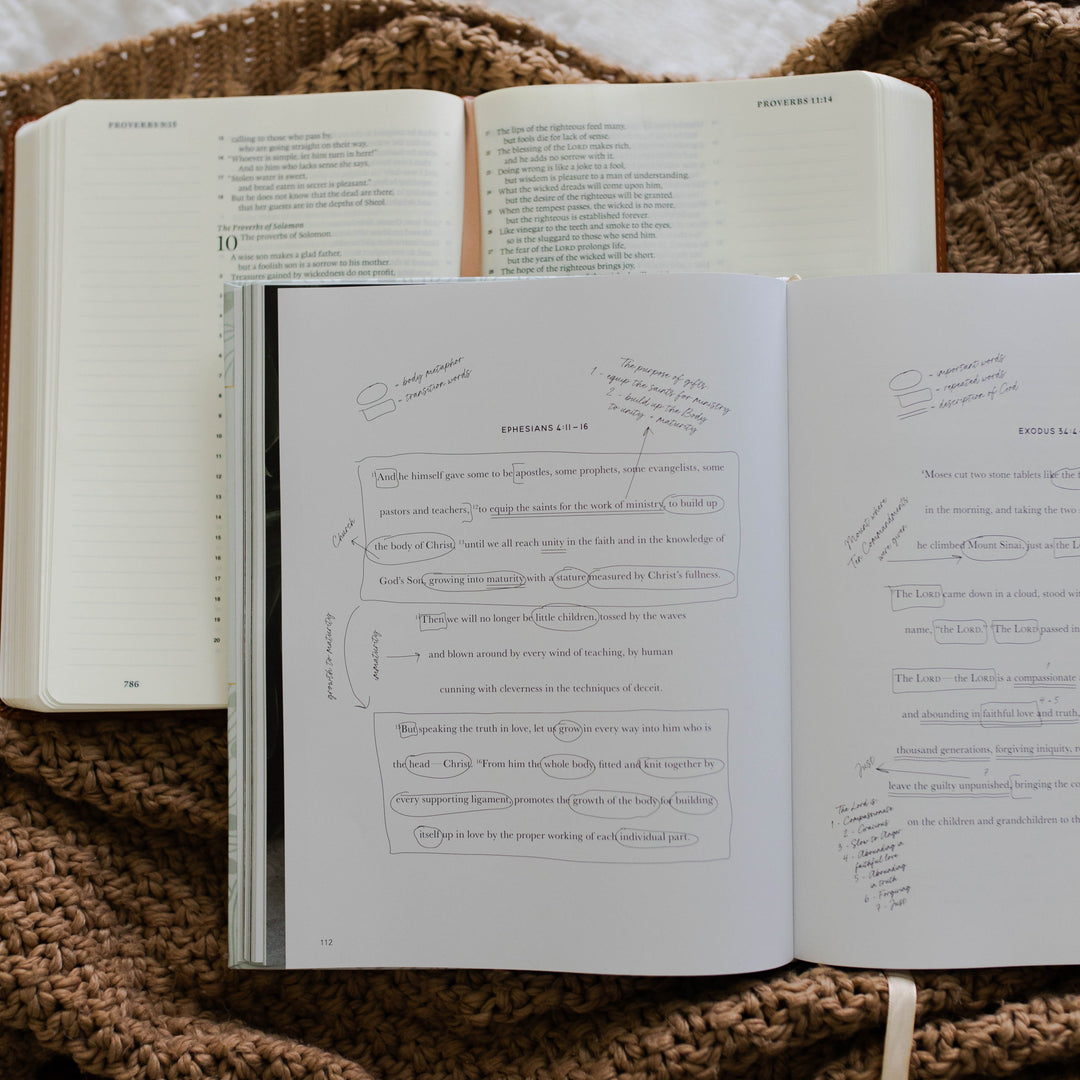 PROVERBS 9:15
calling to those who pass by,
who are going straight on their way,
16 "Whoever is simple, let him turn in here!"
And to him who lacks sense she says,
17 "Stolen water is sweet,
and bread eaten in secret is pleasant."
18 But he does not know that the dead are there,
that her guests are in the depths of Sheol.
The Proverbs of Solomon
10 The proverbs of Solomon.
A wise son makes a glad father,
but a foolish son is a sorrow to his mother.
2 Treasures gained by wickedness do not profit,
10
11
12
13
14
15
16
17
18
19
20
786
PROVERBS 11:14
21 The lips of the righteous feed many,
but fools die for lack of sense.
22 The blessing of the LORD makes rich,
and he adds no sorrow with it.
23 Doing wrong is like a joke to a fool,
but wisdom is pleasure to a man of understanding.
24 What the wicked dreads will come upon him,
but the desire of the righteous will be granted.
25 When the tempest passes, the wicked is no more,
but the righteous is established forever.
26 Like vinegar to the teeth and smoke to the eyes,
so is the sluggard to those who send him.
27 The fear of the LORD prolongs life,
but the years of the wicked will be short.
28 The hope of the righteous brings joy,
- body metaphor
- transition words
The purpose of gifts:
1 - equip the saints for ministry
2 - build up the Body
to unity + maturity
EPHESIANS 4:11–16
11 And he himself gave some to be apostles, some prophets, some evangelists, some
pastors and teachers, 12 to equip the saints for the work of ministry, to build up
Church
the body of Christ, 13 until we all reach unity in the faith and in the knowledge of
God's Son, growing into maturity with a stature measured by Christ's fullness.
14 Then we will no longer be little children, tossed by the waves
growth to maturity
immaturity
and blown around by every wind of teaching, by human
cunning with cleverness in the techniques of deceit.
15 But speaking the truth in love, let us grow in every way into him who is
the head—Christ. 16 From him the whole body, fitted and knit together by
every supporting ligament, promotes the growth of the body for building
itself up in love by the proper working of each individual part.
112
- important words
- repeated words
- description of God
EXODUS 34:4-
4 Moses cut two stone tablets like the f
in the morning, and taking the two
Mount where
Ten Commandments
were given
he climbed Mount Sinai, just as the L
5 The LORD came down in a cloud, stood wi
name, "the LORD." 6 The LORD passed in
The LORD—the LORD is a compassionate
1
4 + 5
and abounding in faithful love and truth,
thousand generations, forgiving iniquity, r
Just
7
leave the guilty unpunished, bringing the co
on the children and grandchildren to th
The Lord is:
1 - Compassionate
2 - Gracious
3 - Slow to Anger
4 - Abounding in
faithful love
5 - Abounding
in truth
6 - Forgiving
7 - Just